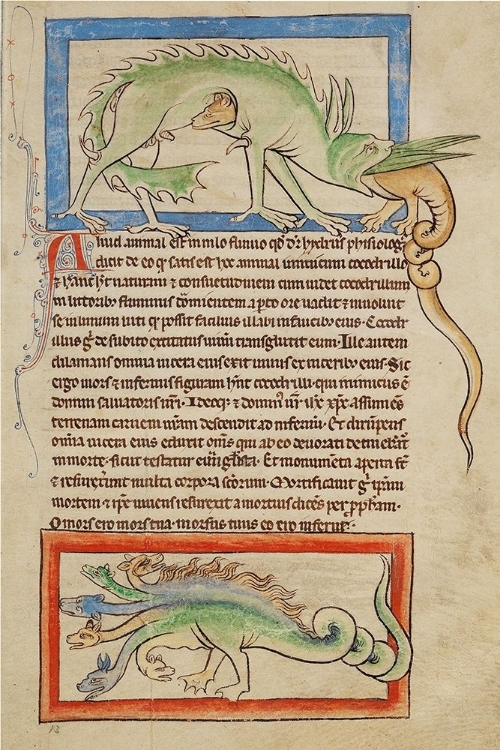 Aliud animal est in nilo fluuio qd dr hydrus phisiolog
dicit de eo q satis est hoc animal inimicum cocodrillo
& hanc ht naturam & consuetudinem cum uidet cocodrillum
in littorib; fluminis dormientem aperto ore uadit & inuoluit
se in limum luti q possit facilius illabi in faucib; eius. Cocodr
illus g de subito excitatus uiuum transglutit eum. Ille autem
dilanians omnia uiscera eius exit uiuus ex uiscerib; eius. Sic
ergo mors & infernus figuram hnt cocodrilli. qui inimicus ē
domini saluatoris nri. Ideoq; & dominus nr ihc xpc assumens
terrenam carnem nram descendit ad infernum. Et dirumpens
omnia uiscera eius eduxit omes qui ab eo deuorati
in morte. sicut testatur euugłista. Et monumenta aperta st
& resurrexerunt multa corpora scorum. Mortificauit g ipam
mortem & ipe uiuens resurrexit a mortuis dicens per ppham.
O mors ero mors tua. morsus tuus ero inferne.